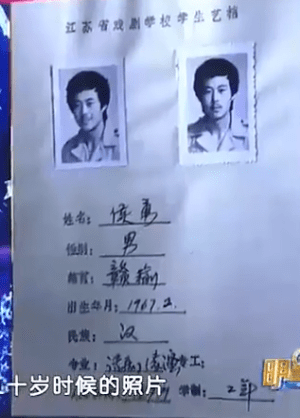 江苏省戏剧学校学生艺档
姓名: 侯勇
性别: 男
籍贯: 赣榆
出生年月: 1967.2.
民族: 汉
专业: 话剧表演专工:
十岁时候的照片
学制: 2年